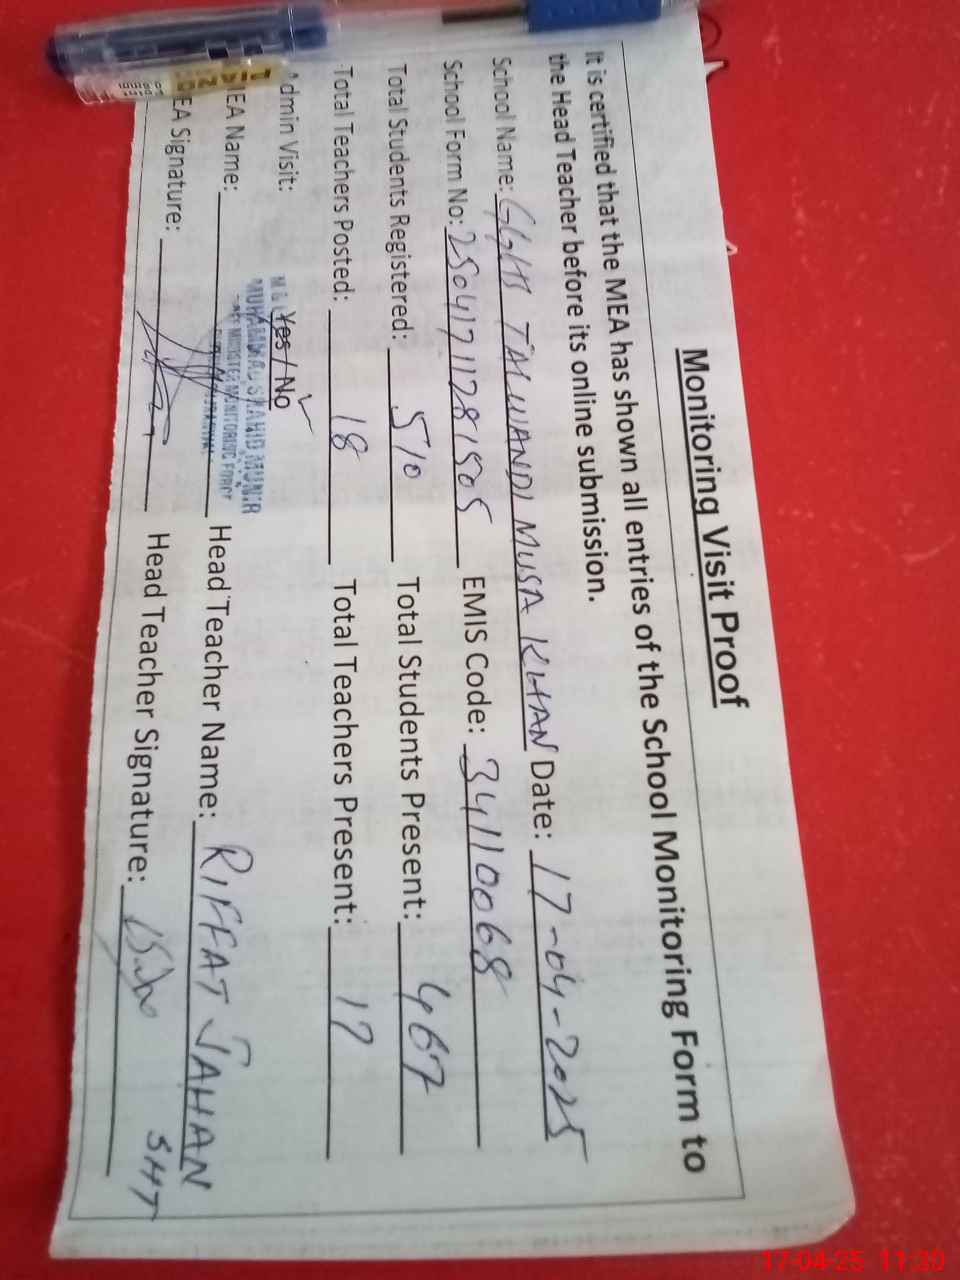 Monitoring Visit Proof
It is certified that the MEA has shown all entries of the School Monitoring Form to
the Head Teacher before its online submission.
School Name: GGHS TALWANDI MUSA KHAN Date: 17-04-2025
School Form No: 25041711281505 EMIS Code: 34110068
Total Students Registered: 510 Total Students Present: 467
Total Teachers Posted: 18 Total Teachers Present: 17
Admin Visit: Yes / No ✓
MUHAMMAD SHAHID MUNIR
MONITORING FORCE
MEA Name: Head Teacher Name: RIFFAT JAHAN
EA Signature: Head Teacher Signature: SHT
17-04-25 11:20